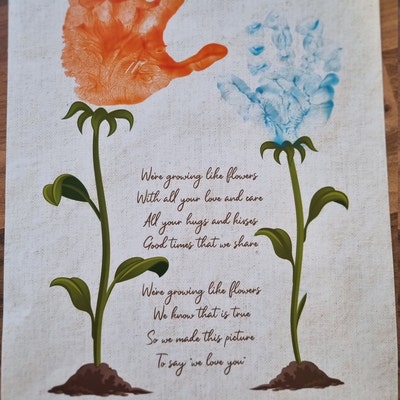 We're growing like flowers
With all your love and care
All your hugs and kisses
Good times that we share
We're growing like flowers
We know that is true
So we made this picture
To say "we love you"